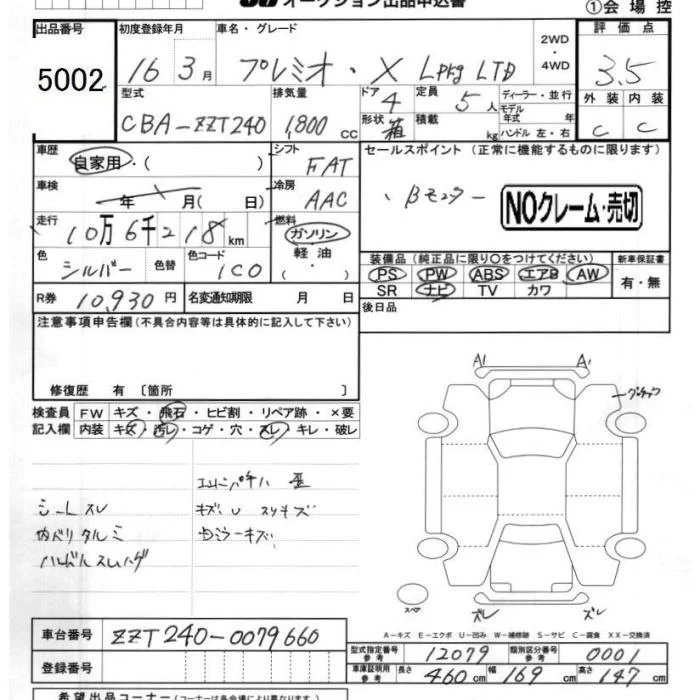 オークション出品申込書
①会場控
出品番号
5002
初度登録年月
16年3月
車名・グレード
プレミオ・X Lpkg LTD
2WD・4WD
評価点
3.5
外装 内装
C C
型式
CBA-ZZT240
排気量
1,800 cc
ドア
4
形状
箱
定員
5人
積載
kg
ディーラー・並行
モデル年式 年
ハンドル 左・右
車歴
自家用・( )
シフト
FAT
車検
年 月( 日)
冷房
AAC
走行
10万6千218km
燃料
ガソリン
軽油
・( )
色
シルバー
色替
色コード
1C0
R券 10,930円
名変通知期限 月 日
セールスポイント(正常に機能するものに限ります)
NOクレーム・売切
装備品(純正品に限り○をつけてください)
PS PW ABS エアB AW
SR ナビ TV カワ
新車保証書
有・無
後日品
注意事項申告欄(不具合内容等は具体的に記入して下さい)
修復歴 有〔箇所 〕
検査員記入欄
FW キズ・飛石・ヒビ割・リペア跡・×要
内装 キズ・汚レ・コゲ・穴・スレ・キレ・破レ
シートスレ
内ベリタルミ
ハンドルスレハゲ
A1 A1
スペア
A-キズ E-エクボ U-凹み W-補修跡 S-サビ C-腐食 XX-交換済
車台番号 ZZT240-0079660
登録番号
型式指定番号 参考 12079
類別区分番号 参考 0001
車庫証明用 参考 長さ 460cm 幅 169cm 高さ 147cm
希望出品コーナー(コーナーは各会場により異なります。)